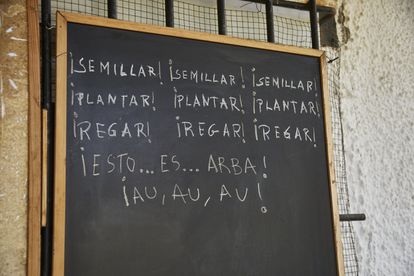 ¡SEMILLAR! ¡SEMILLAR! ¡SEMILLAR!
¡PLANTAR! ¡PLANTAR! ¡PLANTAR!
¡REGAR! ¡REGAR! ¡REGAR!
¡ESTO... ES... ARBA!
¡AU, AU, AU!